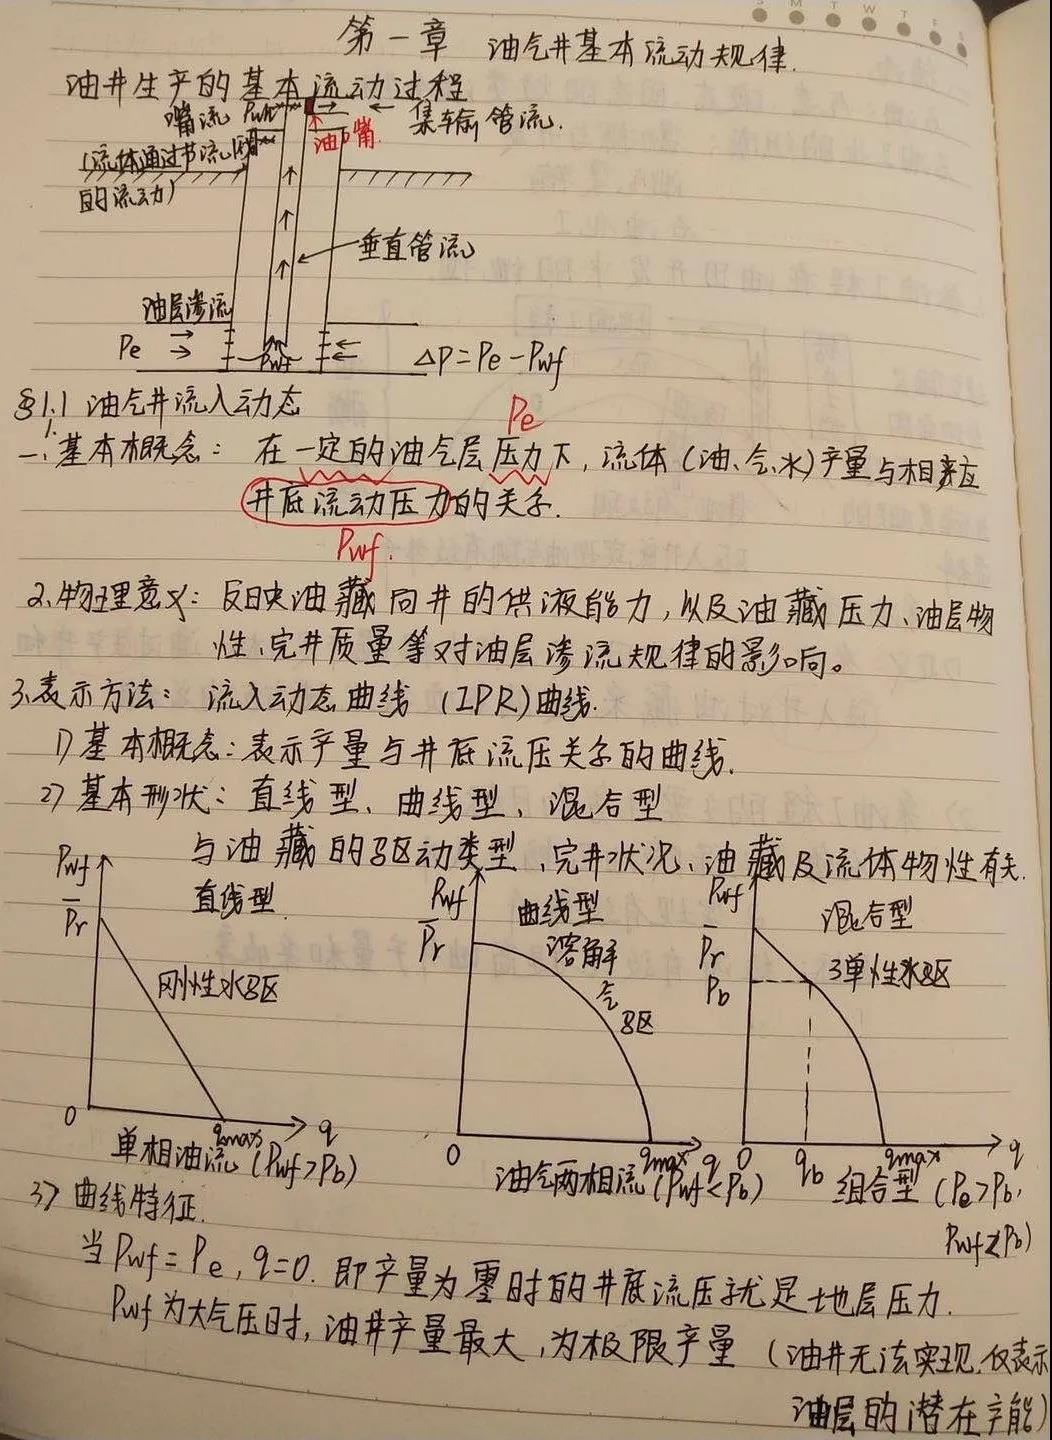 第一章 油气井基本流动规律.
油井生产的基本流动过程
嘴流 Pwh
油嘴
集输管流.
(流体通过节流
的流动)
垂直管流
油层渗流
Pe
Pwf
ΔP=Pe-Pwf
§1.1 油气井流入动态
Pe
一、1.基本概念: 在一定的油气层压力下,流体(油、气、水)产量与相对应
井底流动压力的关系.
Pwf.
2.物理意义: 反映油藏向井的供液能力,以及油藏压力、油层物
性、完井质量等对油层渗流规律的影响。
3.表示方法: 流入动态曲线 (IPR)曲线.
1)基本概念:表示产量与井底流压关系的曲线.
2)基本形状:直线型、曲线型、混合型
与油藏的驱动类型、完井状况、油藏及流体物性有关.
Pwf
Pr
直线型
刚性水驱
0
qmax
q
单相油流(Pwf>Pb)
Pwf
Pr
曲线型
溶解
气
驱
0
qmax
q
油气两相流(Pwf<Pb)
Pwf
Pr
Pb
混合型
弹性水驱
0
qb
qmax
q
组合型(Pe>Pb,
Pwf<Pb)
3)曲线特征.
当Pwf=Pe,q=0.即产量为零时的井底流压就是地层压力.
Pwf为大气压时,油井产量最大,为极限产量 (油井无法实现,仅表示
油层的潜在产能)